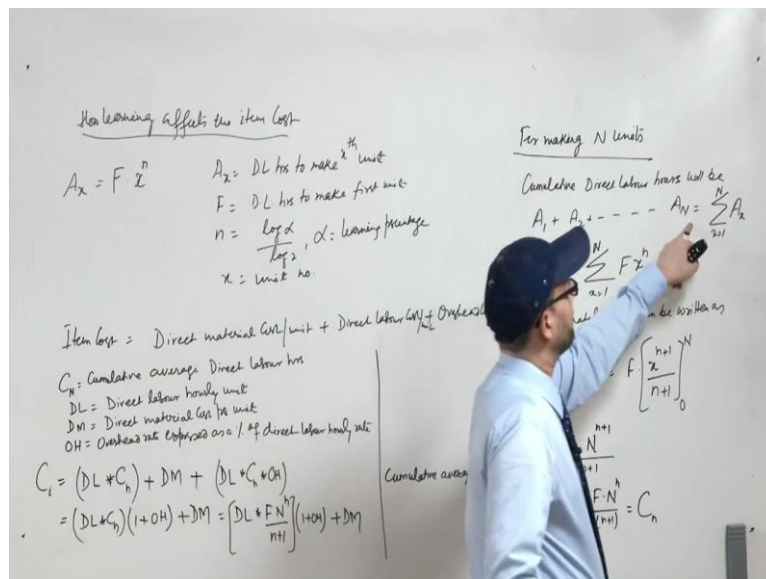 How learning affects the item Cost
Aₓ = F·xⁿ
Aₓ = DL hrs to make xᵗʰ unit
F = D.L. hrs to make first unit
n = log α / log 2, α = learning percentage
x = unit no.
Item Cost = Direct material Cost/unit + Direct labour Cost/unit + Overhead
C_N = Cumulative average Direct labour hrs
DL = Direct labour hourly unit
DM = Direct material Cost per unit
OH = Overhead rate expressed as a % of direct labour hourly rate
C₁ = (DL*Cₙ) + DM + (DL*Cₙ*OH)
= (DL*Cₙ)(1+OH) + DM = [DL * FNⁿ/n+1](1+OH) + DM
For making N units
Cumulative Direct labour hours will be
A₁ + A₂ + - - - - A_N = ∑_{x=1}^{N} Aₓ
∑_{x=1}^{N} F xⁿ
be written as
= F·[xⁿ⁺¹/n+1]₀ᴺ
Nⁿ⁺¹/n+1
Cumulative average
F·Nⁿ/(n+1) = Cₙ